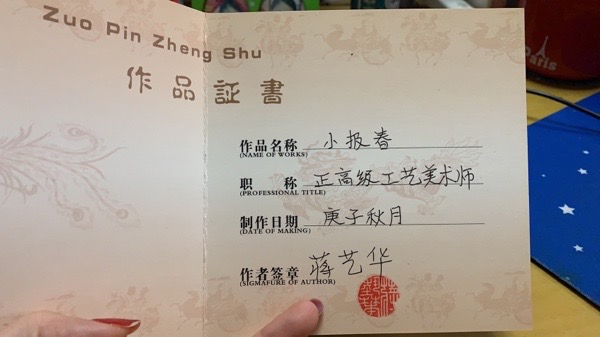 Zuo Pin Zheng Shu
作品証書
作品名称 小报春
(NAME OF WORKS)
职 称 正高级工艺美术师
(PROFESSIONAL TITLE)
制作日期 庚子秋月
(DATE OF MAKING)
作者签章 蒋艺华
(SIGMAFURE OF AUTHOR)
PARIS